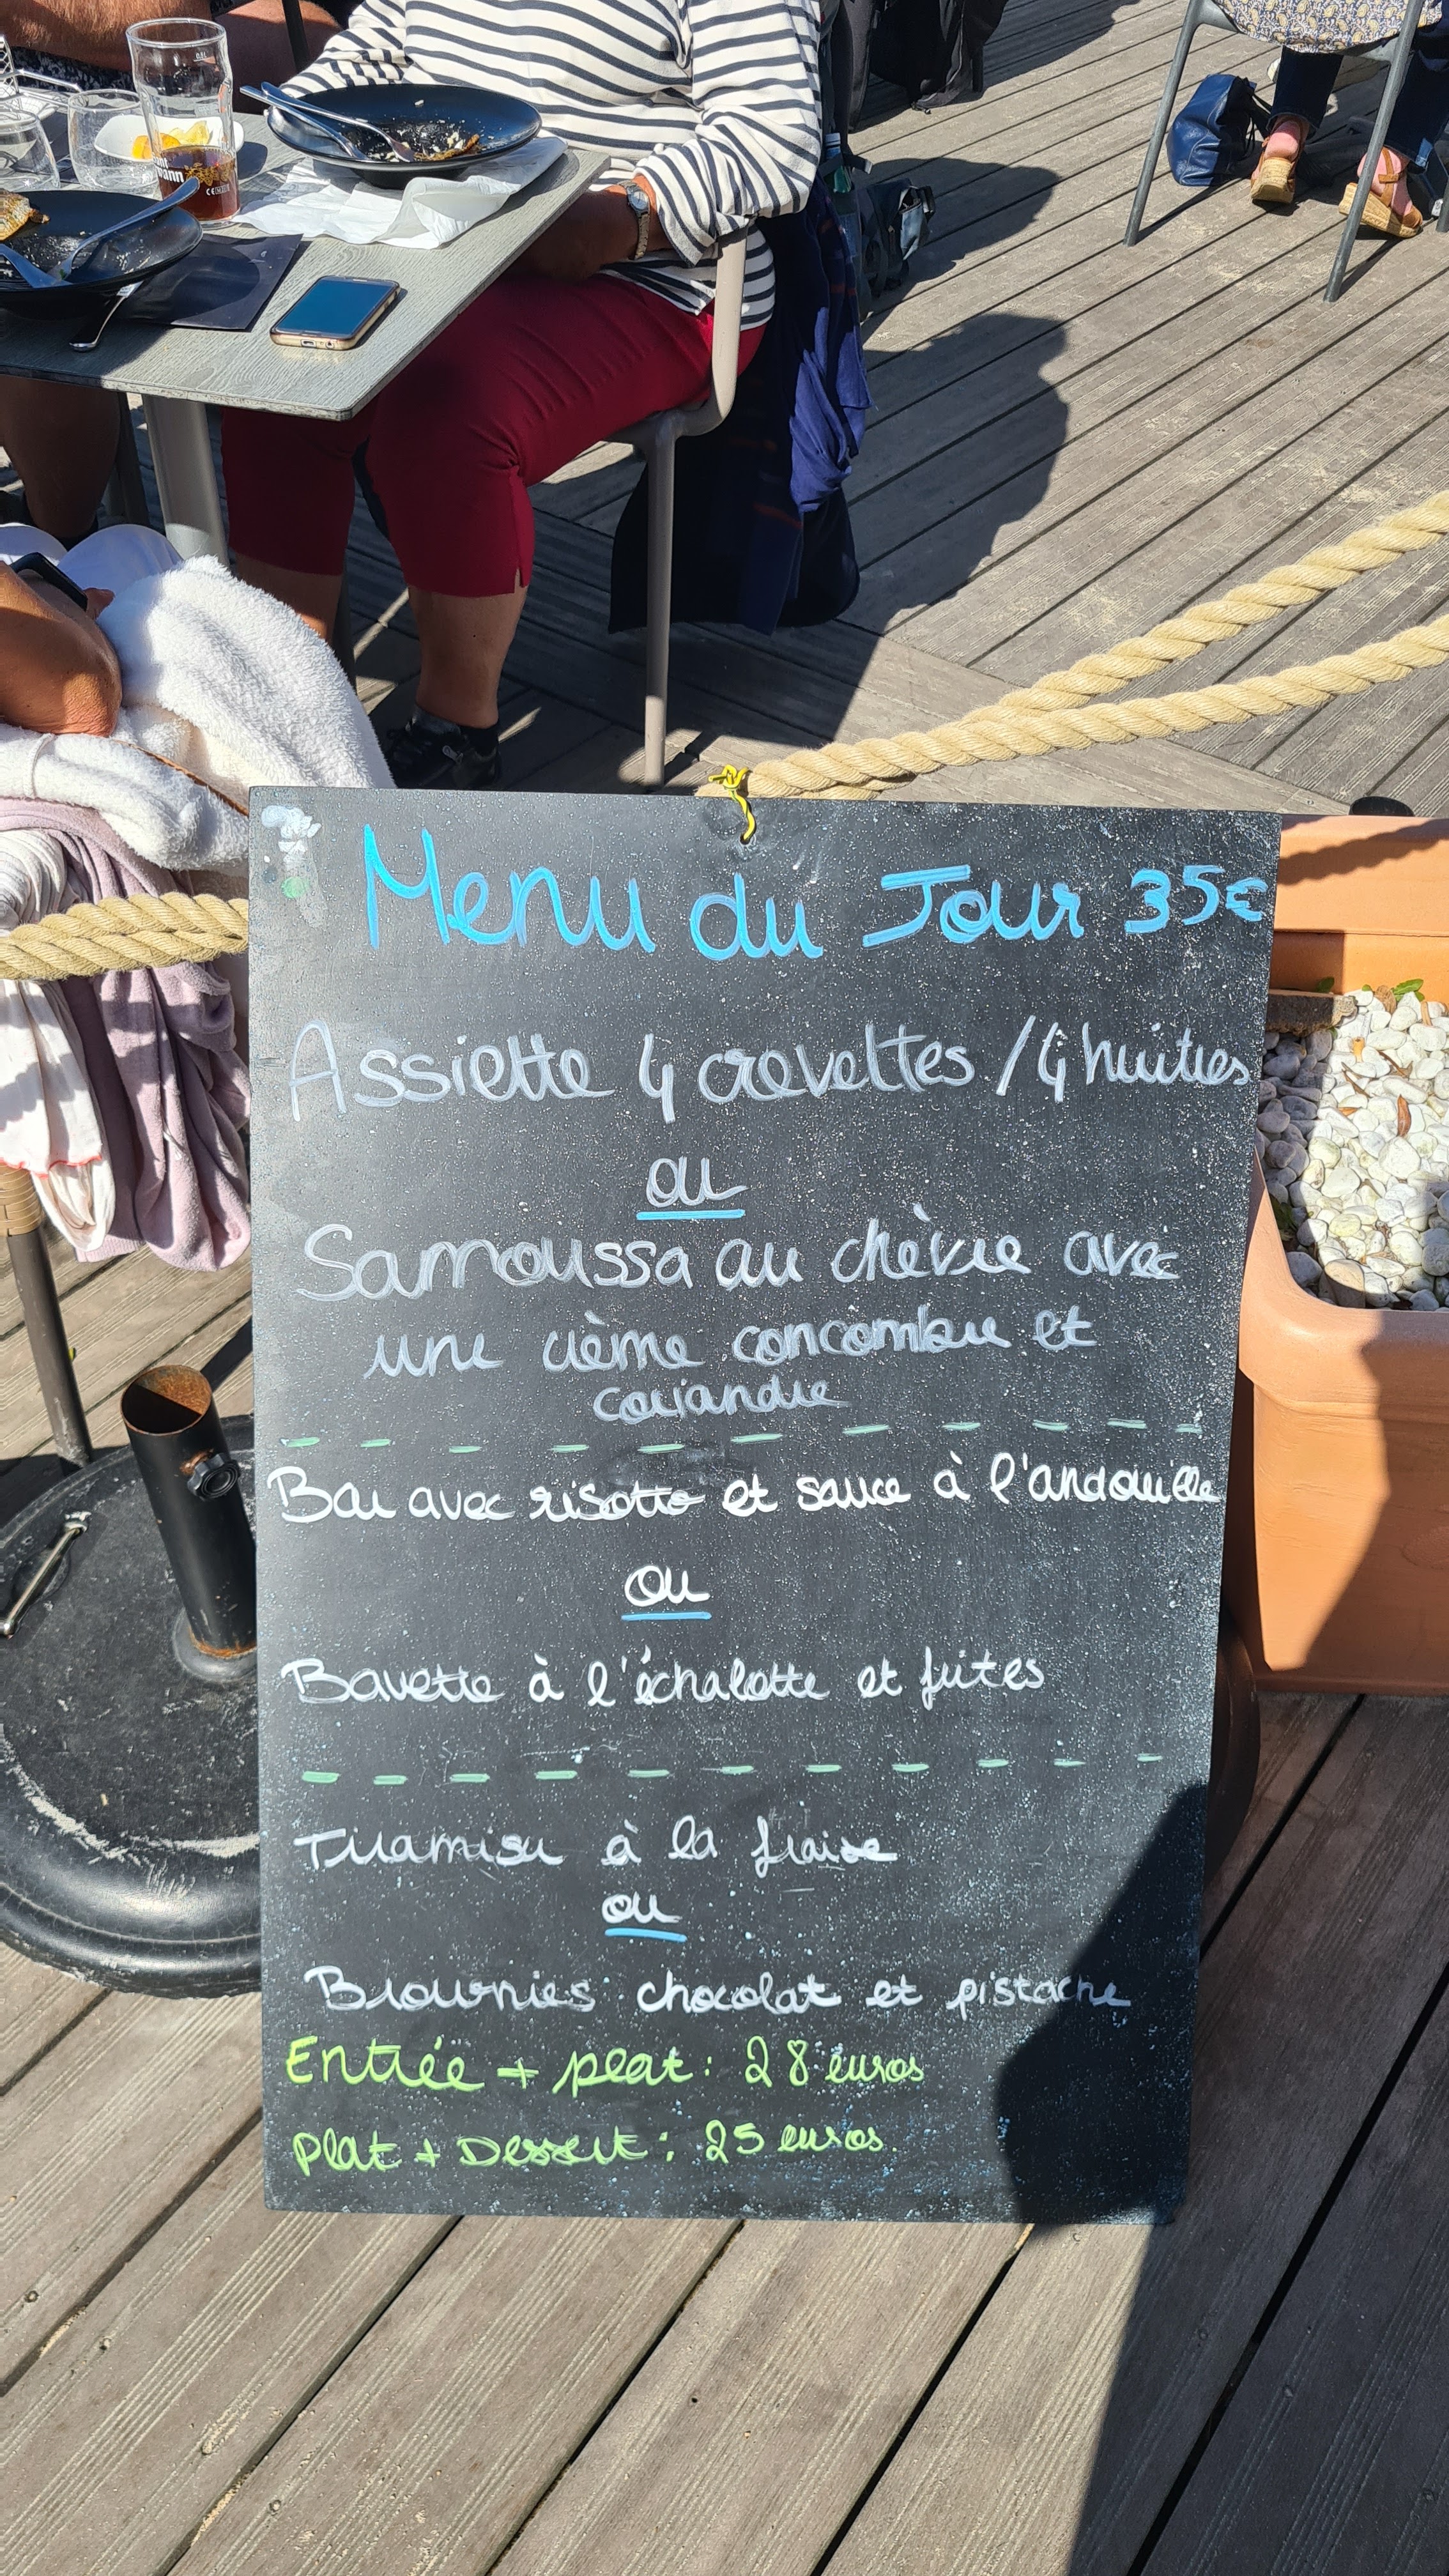 Menu du Jour 35€
Assiette 4 crevettes / 4 huitres
ou
Samoussa au chèvre avec
une crème concombre et
coriandre
Bar avec risotto et sauce à l'andouille
ou
Bavette à l'échalotte et frites
Tiramisu à la fraise
ou
Brownies chocolat et pistache
Entrée + plat : 28 euros
Plat + Dessert : 25 euros